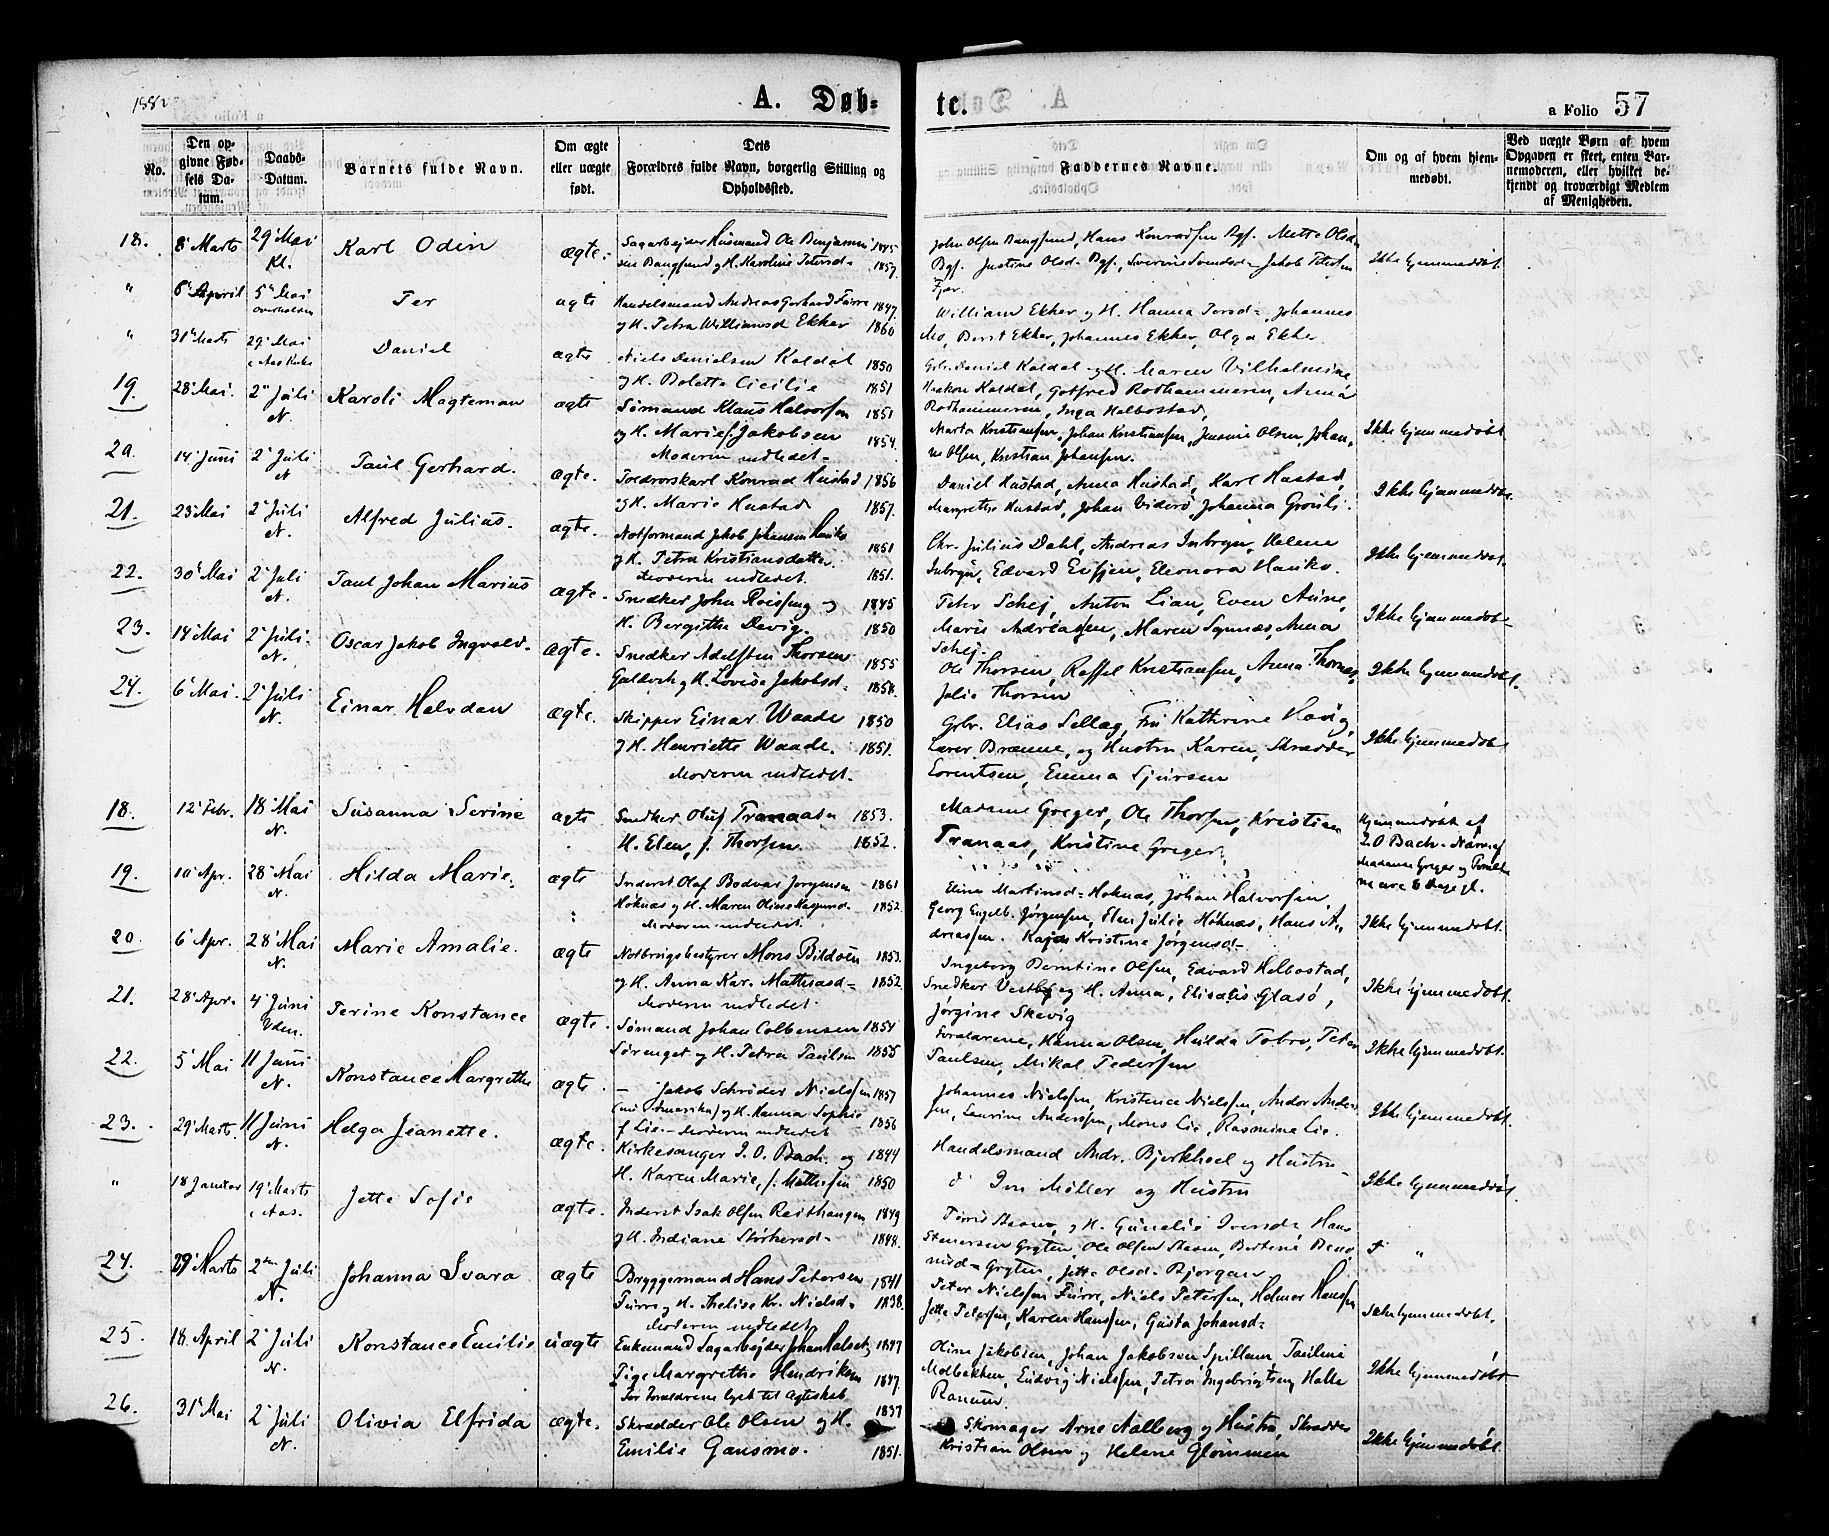 1882
A. Døb-
te.
a Folio 57
No.
Den op-
givne Fød-
sels Da-
tum.
Daabs-
Datum.
Barnets fulde Navn.
Om ægte
eller uægte
født.
Dets
Forældres fulde Navn, borgerlig Stilling og
Opholdssted.
Faddernes Navne.
Om og af hvem hjem-
medøbt.
Ved uægte Børn af hvem
Opgaven er skeet, enten Bar-
nemoderen, eller hvilket be-
kjendt og troværdigt Medlem
af Menigheden.
18. 8 Marts 29 Mai Karl Odin ægte. Sagarbeider Husmand Ole Benjamin 1845
Kl. sen Bangsund og H. Karoline Petersd- 1857.
John Olsen Bangsund, Hans Konradsen Bgs. Mette Olsd-
Bgs. Justine Olsd- Bgs., Severine Svendsd- Jakob Petersen
Fjær. Ikke hjemmedøbt.
" 6 April 5 Mai Per ægte Handelsmand Andreas Gerhard Fürre 1847.
Overhalden og H. Petra Williamsd Ekker 1860
William Ekker og H. Hanna Persd- Johannes
Mo, Berit Ekker, Johannes Ekker, Olga Ekker
" 31 Marts 29 Mai Daniel ægte Niels Danielsen Kaldal 1850
og H. Bolette Cicilie 1851
Gbr. Daniel Kaldal og H. Maren Vilhelmine
Haakon Kaldal, Gotfred Rothammeren, Anna
Rothammeren, Inga Helbostad,
19. 28 Mai. 2 Juli Karoli Magteman ægte Sømand Klaus Halvorsen 1851
N. og H. Marie f. Jakobsen 1854.
Moderen indledet-
Marta Kristiansen, Johan Kristiansen, Jensine Olsen, Johan-
ne Olsen, Kristian Johansen. Ikke hjemmedøbt.
20. 14 Juni 2 Juli Paul Gerhard. ægte. Konrad Hustad 1856
N og H. Marie Hustad 1857.
Daniel Hustad, Anna Hustad, Karl Hustad,
Margrethe Hustad, Johan Viderø, Johanna Grønli. Ikke hjemmedøbt.
21. 23 Mai 2 Juli Alfred Julius. ægte. Notformand Jakob Johansen 1851
N. og H. Petra Kristiansdatter 1851.
Moderen indledet.
Chr. Julius Dahl, Andreas Inbryn, Helene
Inbryn, Edvard Evjen, Eleonora Ikke hjemmedøbt.
22. 30 Mai 2 Juli Paul Johan Marius ægte. Snedker John Reising og 1845
N. H. Bergitha Devig. 1850
Peter Schej, Anton Lian, Even Aune,
Marie Andreassen, Maren Synnes, Anna
Schej. Ikke hjemmedøbt-
23. 14 Mai 2 Juli. Oscar Jakob Ingvald. ægte. Snedker Adelsten Thorsen 1855
N. og H. Lovise Jakobsd- 1858.
Ole Thorsen, Raffel Kristiansen, Anna
Julie Thorsen Ikke hjemmedøbt.
24. 6 Mai. 2 Juli Einar Halvdan ægte. Skipper Einar Waade 1850
N. og H. Henriette Waade. 1851.
Moderen indledet.
Gbr. Elias Sellæg, Fru Kathrine
Lærer Brænne, og Hustru Karen, Skrædder
Lorentsen, Emma Sjursen Ikke hjemmedøbt
18. 12 Febr. 18 Mai Susanna Serine ægte Snedker Oluf Tranaas 1853.
N. H. Elen, f. Thorsen. 1852.
Madame Greger, Ole Thorsen, Kristian
Tranaas, Kristine Greger
Hjemmedøbt af
J. O. Bach
Madame Greger og
19. 10 Apr. 28 Mai Hilda Marie. ægte Inderst Olaf Bodvar Jørgensen 1861
N. Høknæs og H. Maren 1852.
Moderen indledet
Eline Martinsd- Høknæs, Johan Halvorsen,
Georg Engelb. Jørgensen, Elen Julie Høknæs, Hans An-
dreassen. Kaja Kristine Jørgensd- Ikke hjemmedøbt.
20. 6 Apr. 28 Mai Marie Amalie. ægte Notbrugsbestyrer Mons Bildsøn 1853.
N. og H. Anna Kar. Mathiasd- 1852.
Moderen indledet.
Ingeborg Berntine Olsen, Edvard Helbostad,
Snedker Vestby og H. Anna, Elisæus Glasø,
Jørgine Skevig Ikke hjemmedøbt.
21. 28 Apr. 4 Juni Perine Konstance ægte. Sømand Johan Colbensen 1854
Vden. Sørenget og H. Petra Paulsen 1855
Forældrene, Hanna Olsen, Hulda Fobro, Peter
Paulsen, Mikal Pedersen Ikke hjemmedøbt.
22. 5 Mai 11 Juni Konstance Margrethe ægte. – Jakob Schrøder Nielsen 1857
N. (nu i Amerika) og H. Hanna Sophie 1856
f. Lie. – Moderen indledet
Johannes Nielsen, Kristence Nielsen, Andor Ander-
sen, Laurine Anderssen, Mons Lie, Rasmine Lie. Ikke hjemmedøbt.
23. 29 Marts 11 Juni Helga Jeanette. ægte. Kirkesanger J. O. Bach og 1844
N. H. Karen Marie, f. Mathisen 1850
Handelsmand Andr. Bjerkhoel og Hustru –
do Møller og Hustru Ikke hjemmedøbt.
" 18 Januar 19 Marts Jette Sofie ægte. Inderst Isak Olsen Reithaugen 1849
i Aas. og H. Indiane Størkersd- 1848.
Stasnes og H.
Grytten, Ole Olsen Jette Olsd- Bjørgan "
24. 29 Marts 2 Juli Johanna Svara ægte Bryggemand Hans Petersen 1841
N. Furre og H. Thalise Kr. Nielsd- 1838.
Moderen indledet
Peter Nielsen Fürre, Niels Petersen, Helmer Hansen
Jette Petersen, Karen Hansen, Gusta Johansd- Ikke hjemmedøbt.
25. 18 April 2 Juli Konstance Emilie uægte Enkemand Sagarbejder Johan 1847
N. Pige Margrethe Hendriksen 1847.
For Forældrene lyst til Ægteskab
Oline Jakobsen, Johan Jakobsen Spillum Pauline
Moebakken, Ludvig Nielsen, Petra Ingebrigtsen, Halle
Ranum. Ikke hjemmedøbt
26. 31 Mai 2 Juli Olivia Elfrida ægte. Skrædder Ole Olsen og H. 1837
N. Emilie Gansmo. 1851.
Skomager Arne Aalberg og Hustru, Skrædder
Kristian Olsen og Helene Glommen Ikke hjemmedøbt.